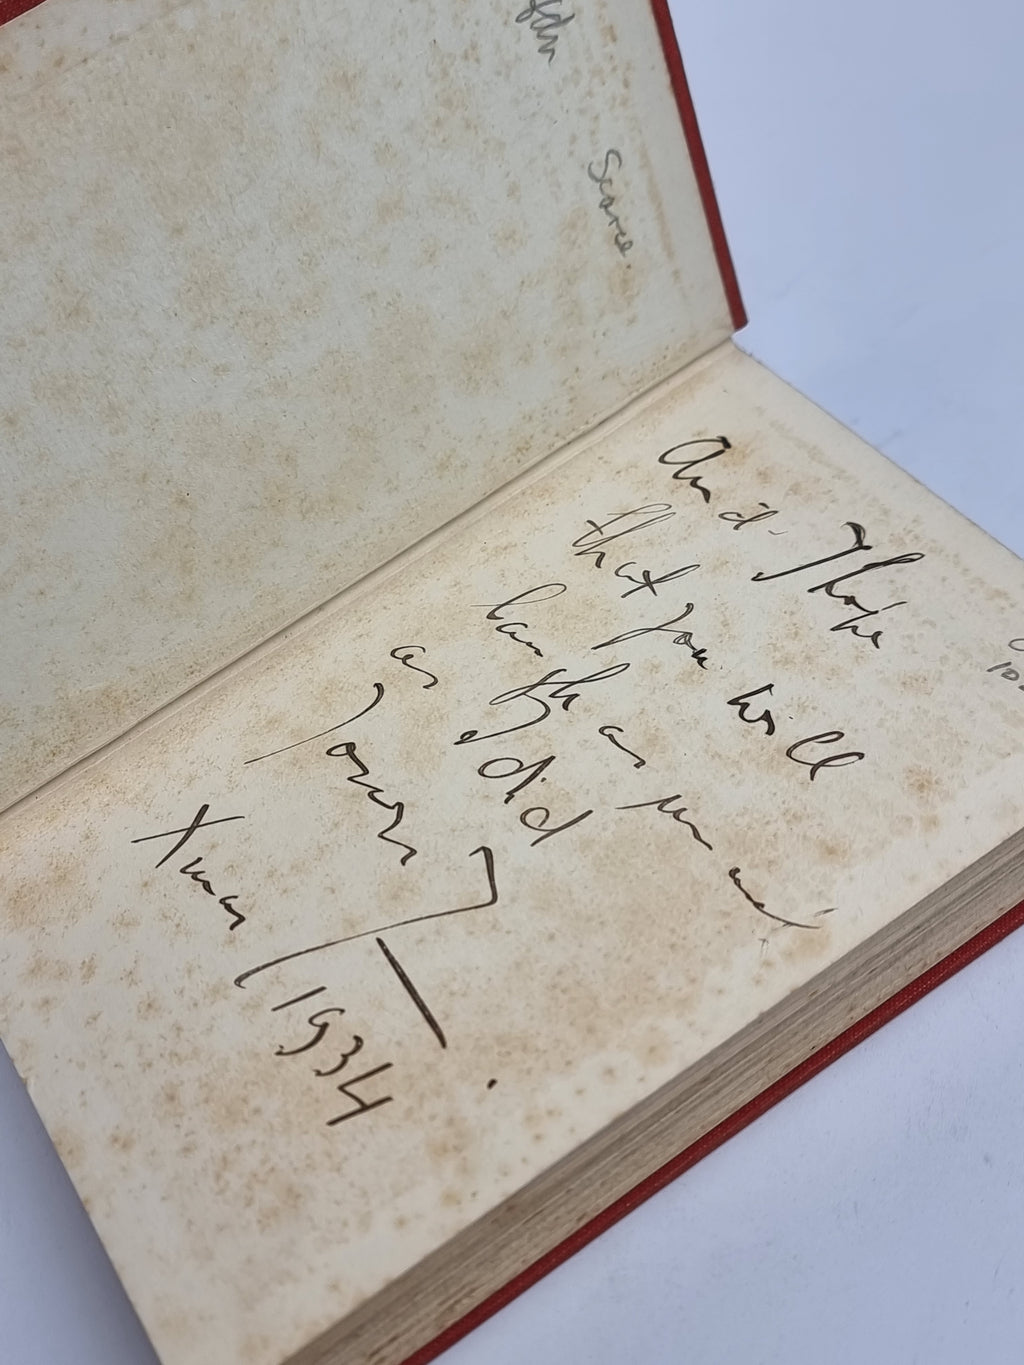 Scarce
And I hope
that you will
laugh as much
as I did
Yours
Xmas 1934